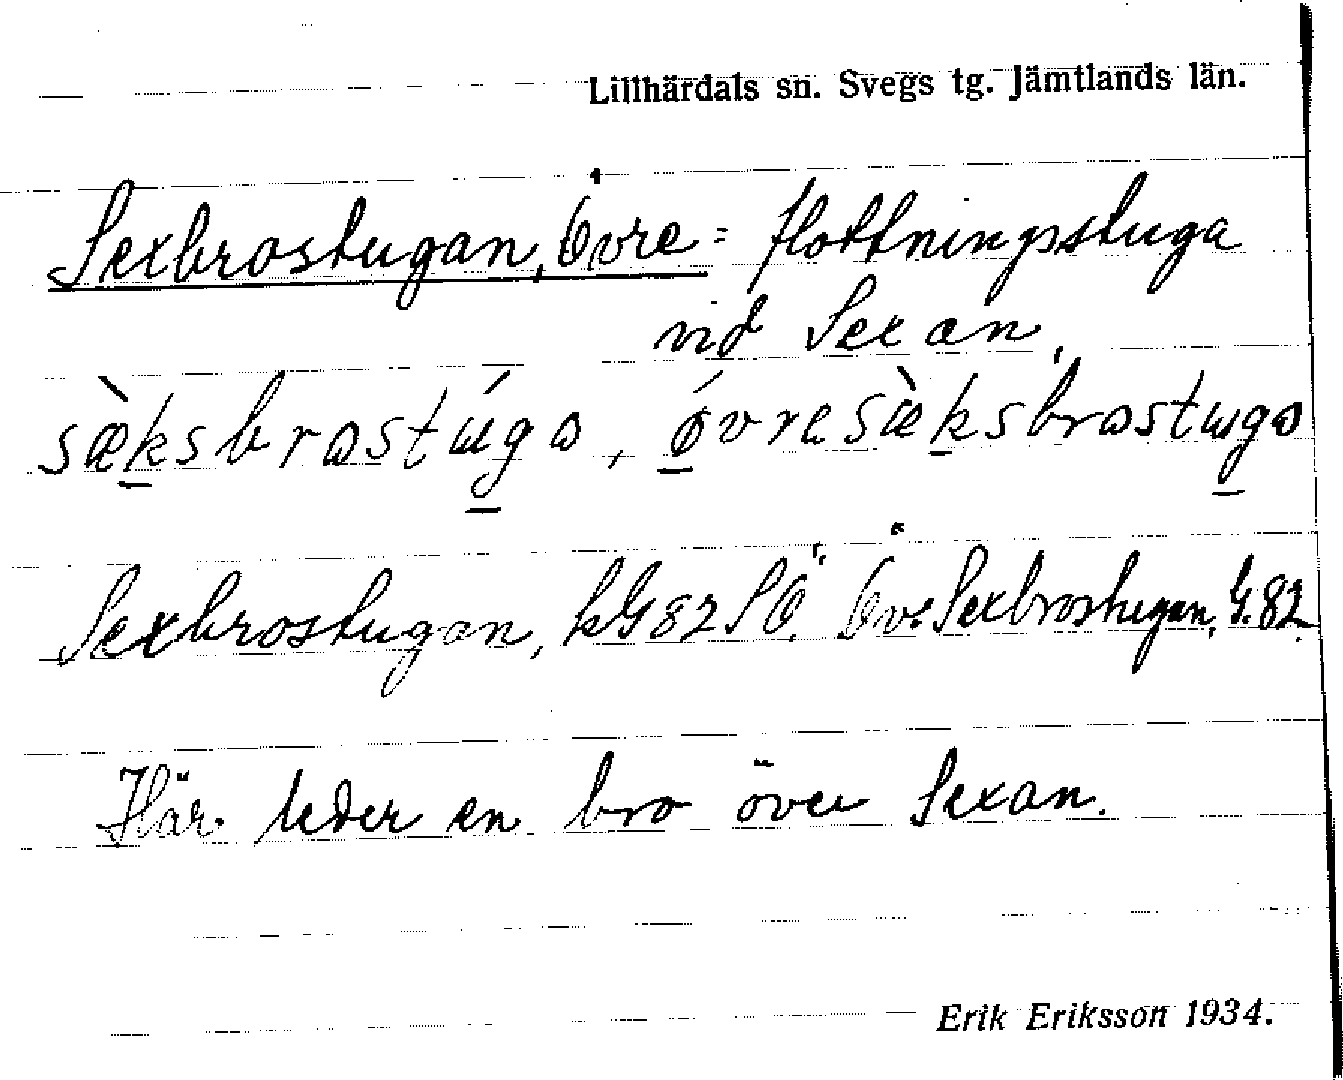 Lillhärdals sn. Svegs tg. Jämtlands län.
Sexbrostugan, Övre = flottningsstuga
vid Sexan,
sæ̀ksbrɷstɯ́gɷ, ǿvresæ̀ksbrɷstɯgɷ
Sexbrostugan, kG82SÖ. Övr. Sexbrostugan, G.82.
Här leder en bro över Sexan.
Erik Eriksson 1934.